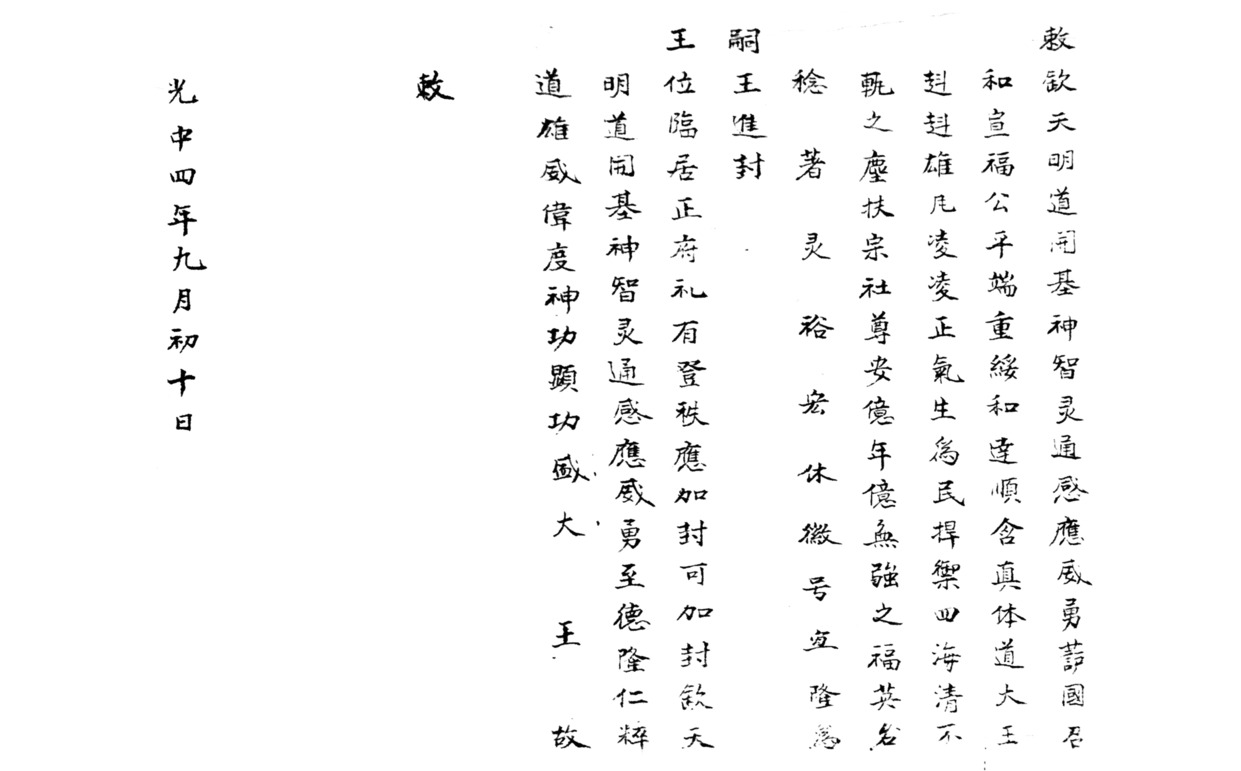 敕欽天明道開基神智灵通感應威勇莭國召
和宣福公平端重綏和達順含真体道大王
赳赳雄凡凌凌正氣生為民捍禦四海清不
軌之塵扶宗社尊安億年億無強之福英名
稔著灵裕宏休徽号宜隆為
嗣王進封
王位臨居正府礼有登秩應加封可加封欽天
明道開基神智灵通感應威勇至德隆仁粹
道雄威偉度神功顯功盛大王故
敕
光中四年九月初十日